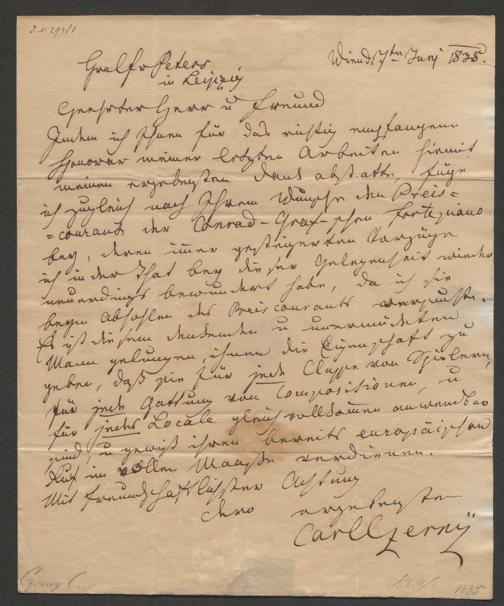 I.N. 29781
Wien d. 7ten Juny 1835.
Peters
in Leipzig
Geehrter Herr u Freund
Indem ich Ihnen für das richtig empfangene
Honorar meiner letzten Arbeiten hiemit
meinen ergebensten Dank abstatte, füge
ich zugleich nach Ihrem Wunsche den Preis=
=courant der Conrad-Graf-schen Fortepiano
bey, deren immer gesteigerten Vorzüge
ich in der That bey dieser Gelegenheit wieder
neuerdings bewundert habe, da ich sie
beym Abhohlen des Preiscourants versuchte.
Es ist diesem denkenden u unermüdeten
Mann gelungen, ihnen die Eigenschaft zu
geben, daß sie für jede Classe von Spielern,
für jede Gattung von Compositionen, u
für jedes Locale gleich vollkommen anwendbar
sind u gewiß ihren bereits europäischen
Ruf im vollen Maaße verdienen.
Mit freundschaftlichster Achtung
Ihro ergebenster
Carl Czerny
Czerny C.
1835